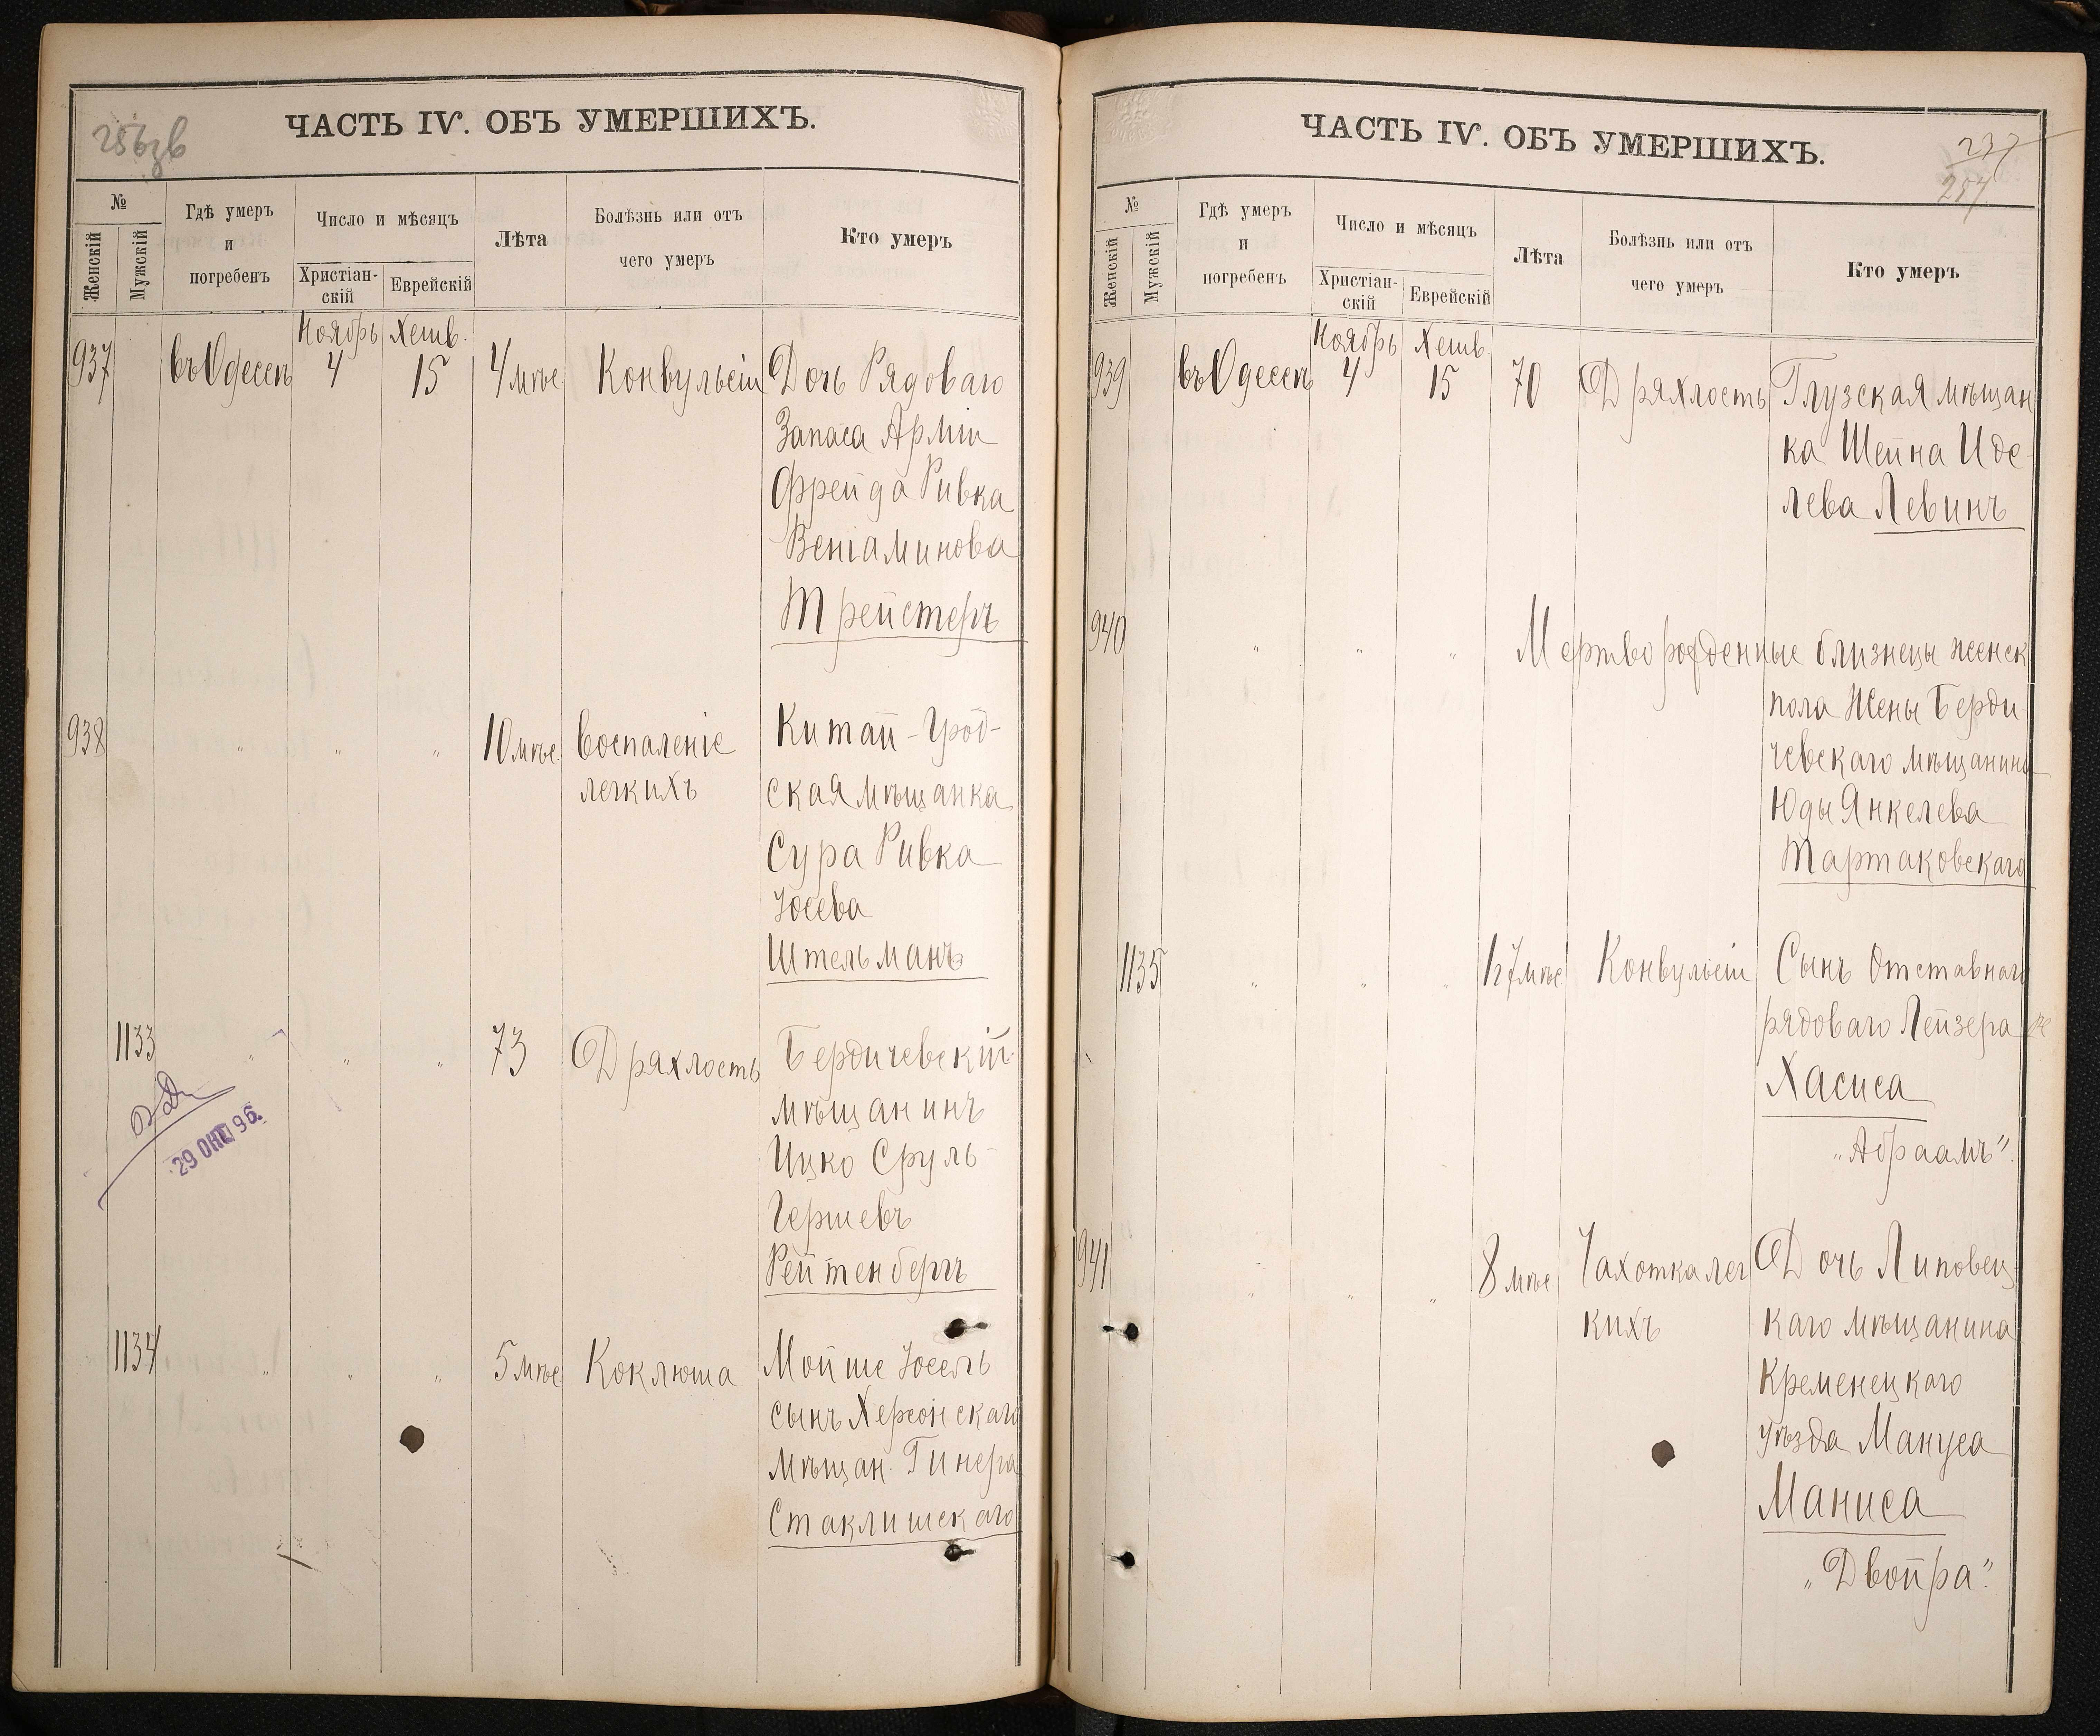 256зв
ЧАСТЬ IV. ОБЪ УМЕРШИХЪ.
№
Женскій
Мужскій
Гдѣ умеръ
и
погребенъ
Число и мѣсяцъ
Христіан-
скій
Еврейскій
Лѣта
Болѣзнь или отъ
чего умеръ
Кто умеръ
Ноябрь Хешв.
937 въ Одессѣ 4 15 4 мѣс Конвульсіи Дочь Рядоваго
Запаса Арміи
Фрейда Ривка
Веніаминова
Трейстеръ
938 " " " 10 мѣс. Воспаленіе Китай-Грод-
легкихъ ская мѣщанка
Сура Ривка
Іосева
Штельманъ
1133 " " " 73 Дряхлость Бердичевскій
мѣщанинъ
Ицко Сруль-
Гершевъ
Рейтенбергъ
29 ОКТ 96.
1134 " " " 5 мѣс Коклюша Мойше Іосель
сынъ Херсонскаго
мѣщан. Гинера
Стаклишскаго
ЧАСТЬ IV. ОБЪ УМЕРШИХЪ.
237
257
№
Женскій
Мужскій
Гдѣ умеръ
и
погребенъ
Число и мѣсяцъ
Христіан-
скій
Еврейскій
Лѣта
Болѣзнь или отъ
чего умеръ
Кто умеръ
Ноябрь Хешв.
939 въ Одессѣ 4 15 70 Дряхлость Глузская мѣщан
ка Шейна Иде-
лева Левинъ
940 " " " Мертворожденные близнецы женск
пола Жены Берди
чевскаго мѣщанина
Юды Янкелева
Тартаковскаго
1135 " " " 1 г 7 мѣс Конвульсіи Сынъ Отставнаго
рядоваго Лейзера
Хасиса
„Абраамъ".
941 " " " 8 мѣс Чахотка лег Дочь Липовец
кихъ каго мѣщанина
Кременецкаго
уѣзда Мануса
Маниса
„Двойра".